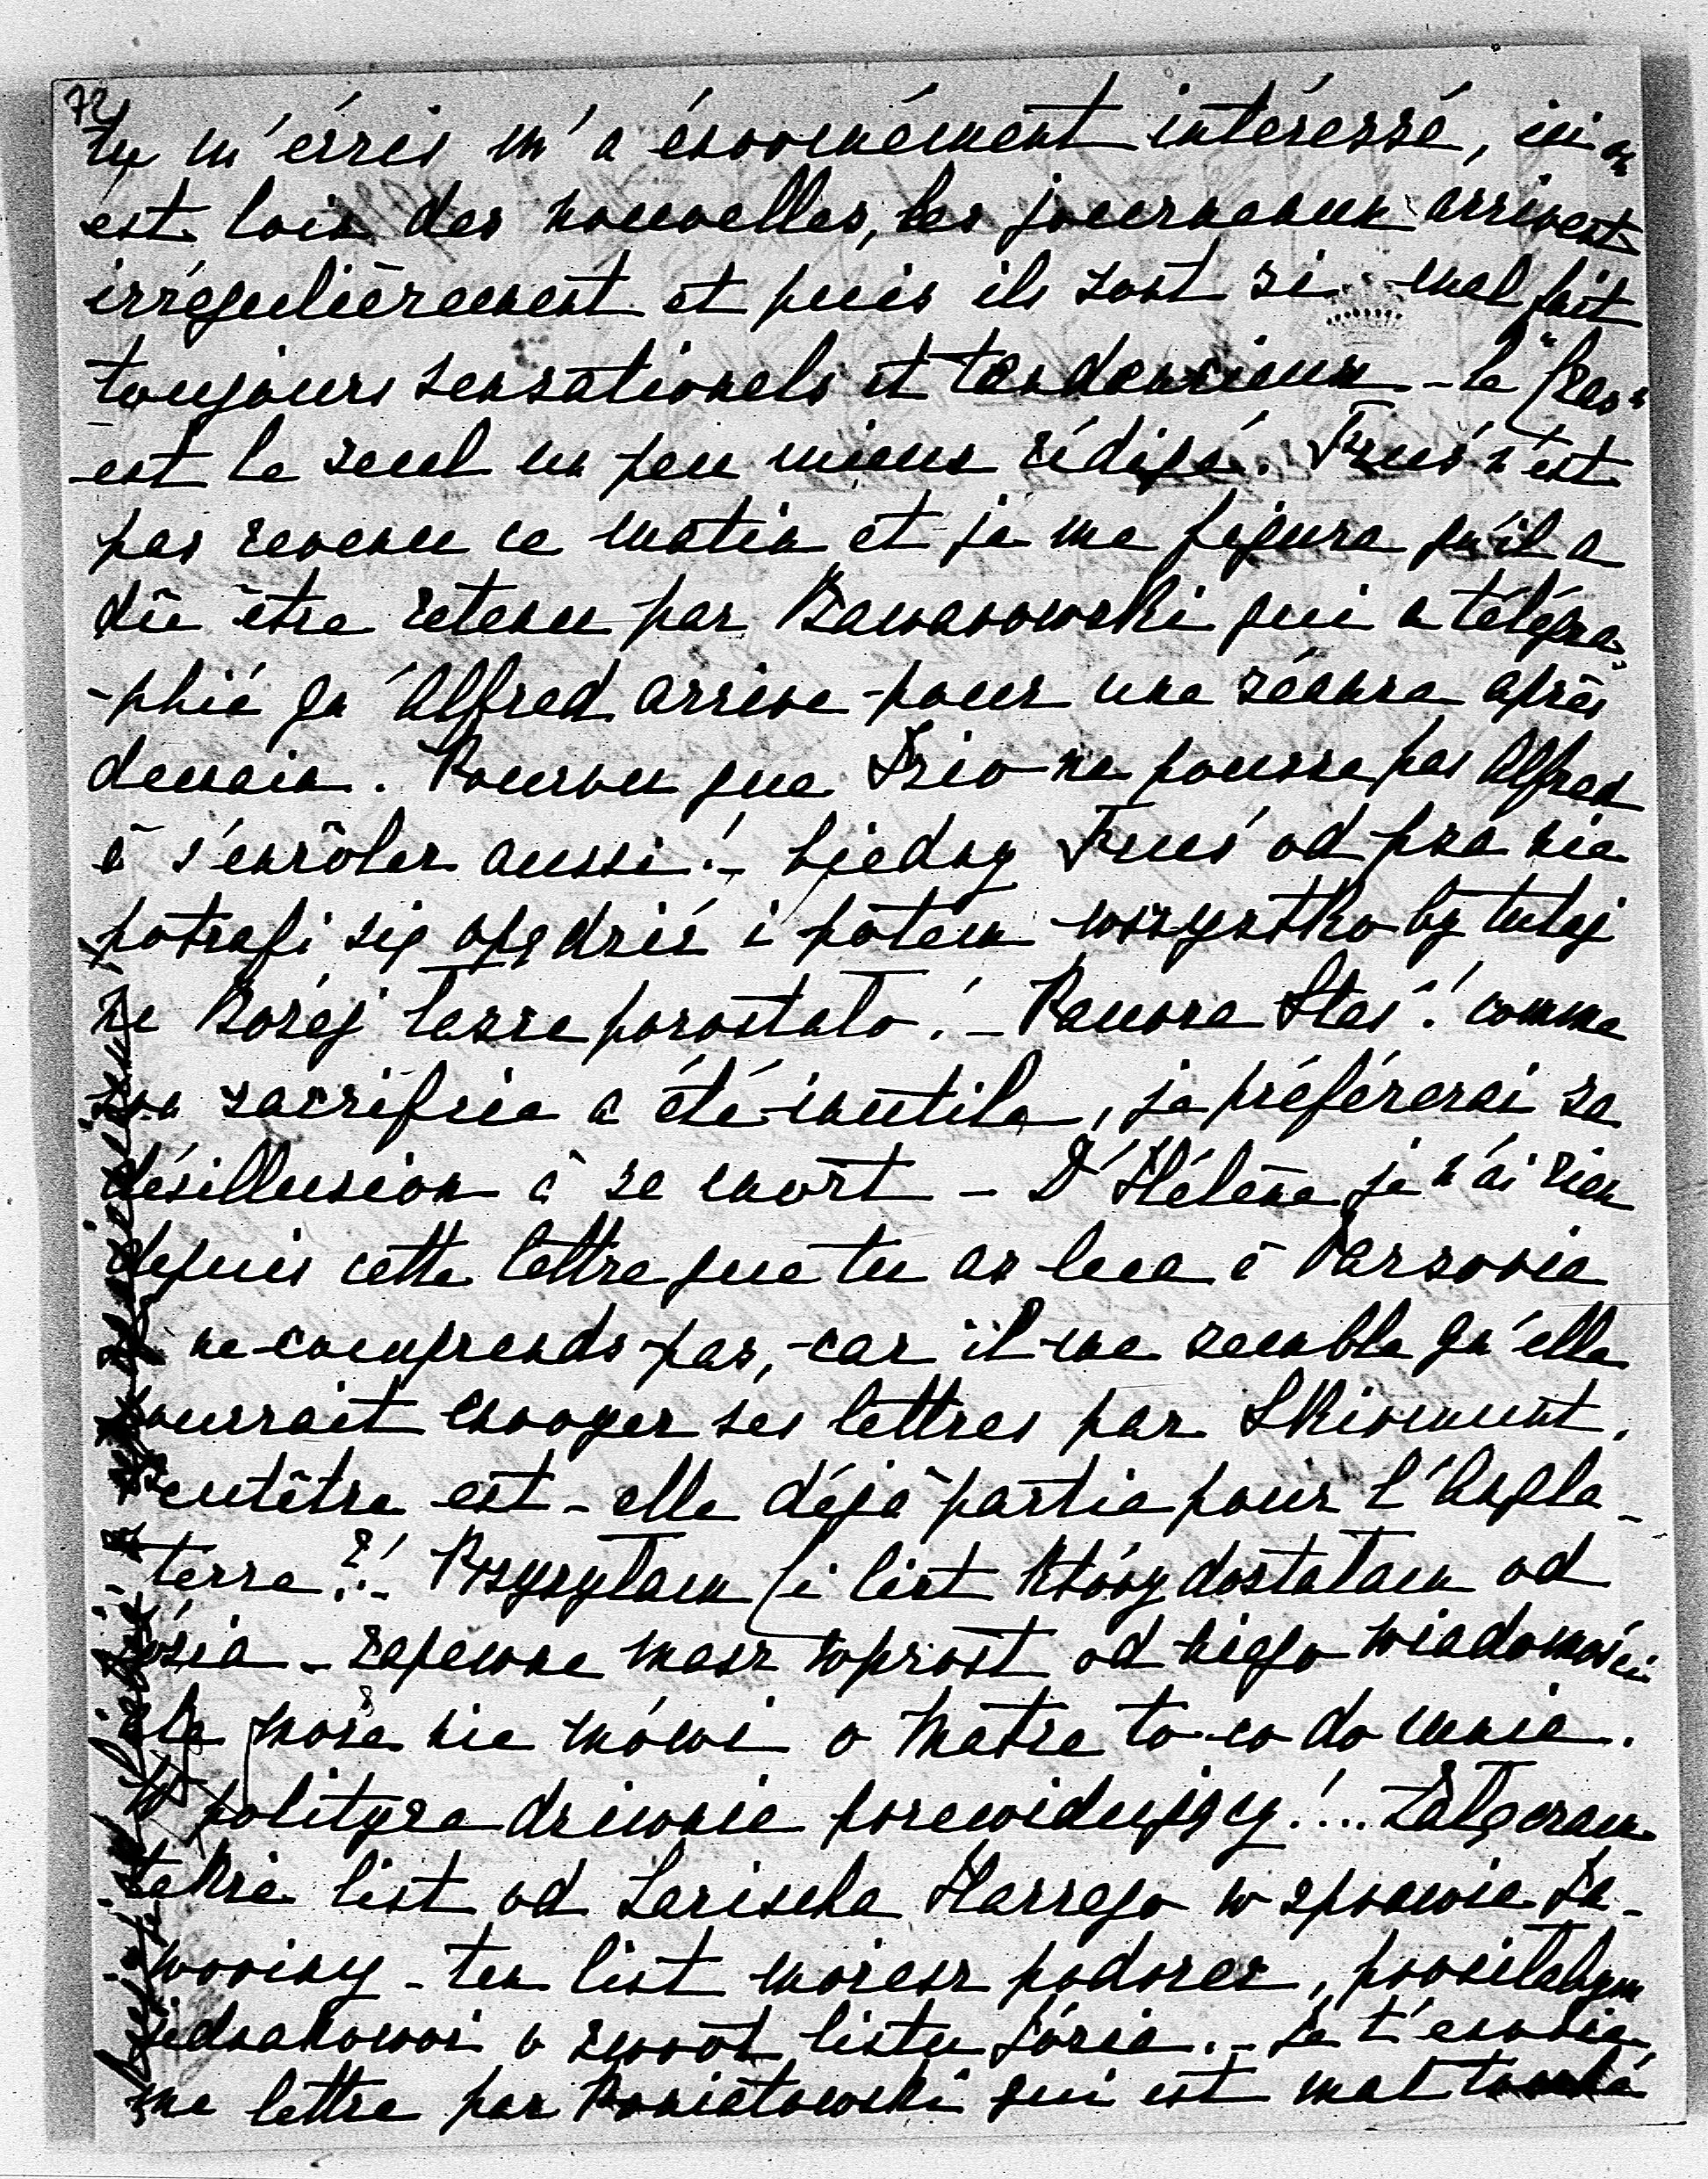 72
tu m'écris m'a énormément intéressé, ici on
est loin des nouvelles, les journeaux arrivent
irrégulièrement et puis ils sont si mal fait
toujours sensationels et tendencieux - le "Czas"
est le seul un peu mieux rédigé. Fruś n'est
pas revenu ce matin et je me figure qu'il a
dû être retenu par Baworowski qui a télégra-
-phié qu'Alfred arrive pour une séance après
demain. Pourvu que Frio ne pousse pas Alfred
à s'enrôler aussi! - biedny Fruś od psa nie
potrafi się opędzić i potem wszystko by tutaj
na Bożej łasce pozostało! - Pauvre Staś! comme
son sacrifice a été inutile, je préférerai sa
désillusion à sa mort - D'Hélène je n'ai rien
depuis cette lettre que tu as lue à Varsovie
ne comprends pas, car il me semble qu'elle
pourrait envoyer ses lettres par Skirmunt.
Peutêtre est-elle déjà partie pour l'Angle-
-terre?! - Przysyłam Ci list który dostałam od
Józia - zapewne masz wprost od niego wiadomości
ale może nie mówi o Matce to co do mnie.
polityce dziwnie przewidujący!... Załączam
także list od Larischa Harrego w sprawie Ja-
worziny - ten list możesz podrzeć, prosiłabym
jednakowoż o zwrot listu Józia. - Je t'envoie
une lettre par Poniatowski qui est mal